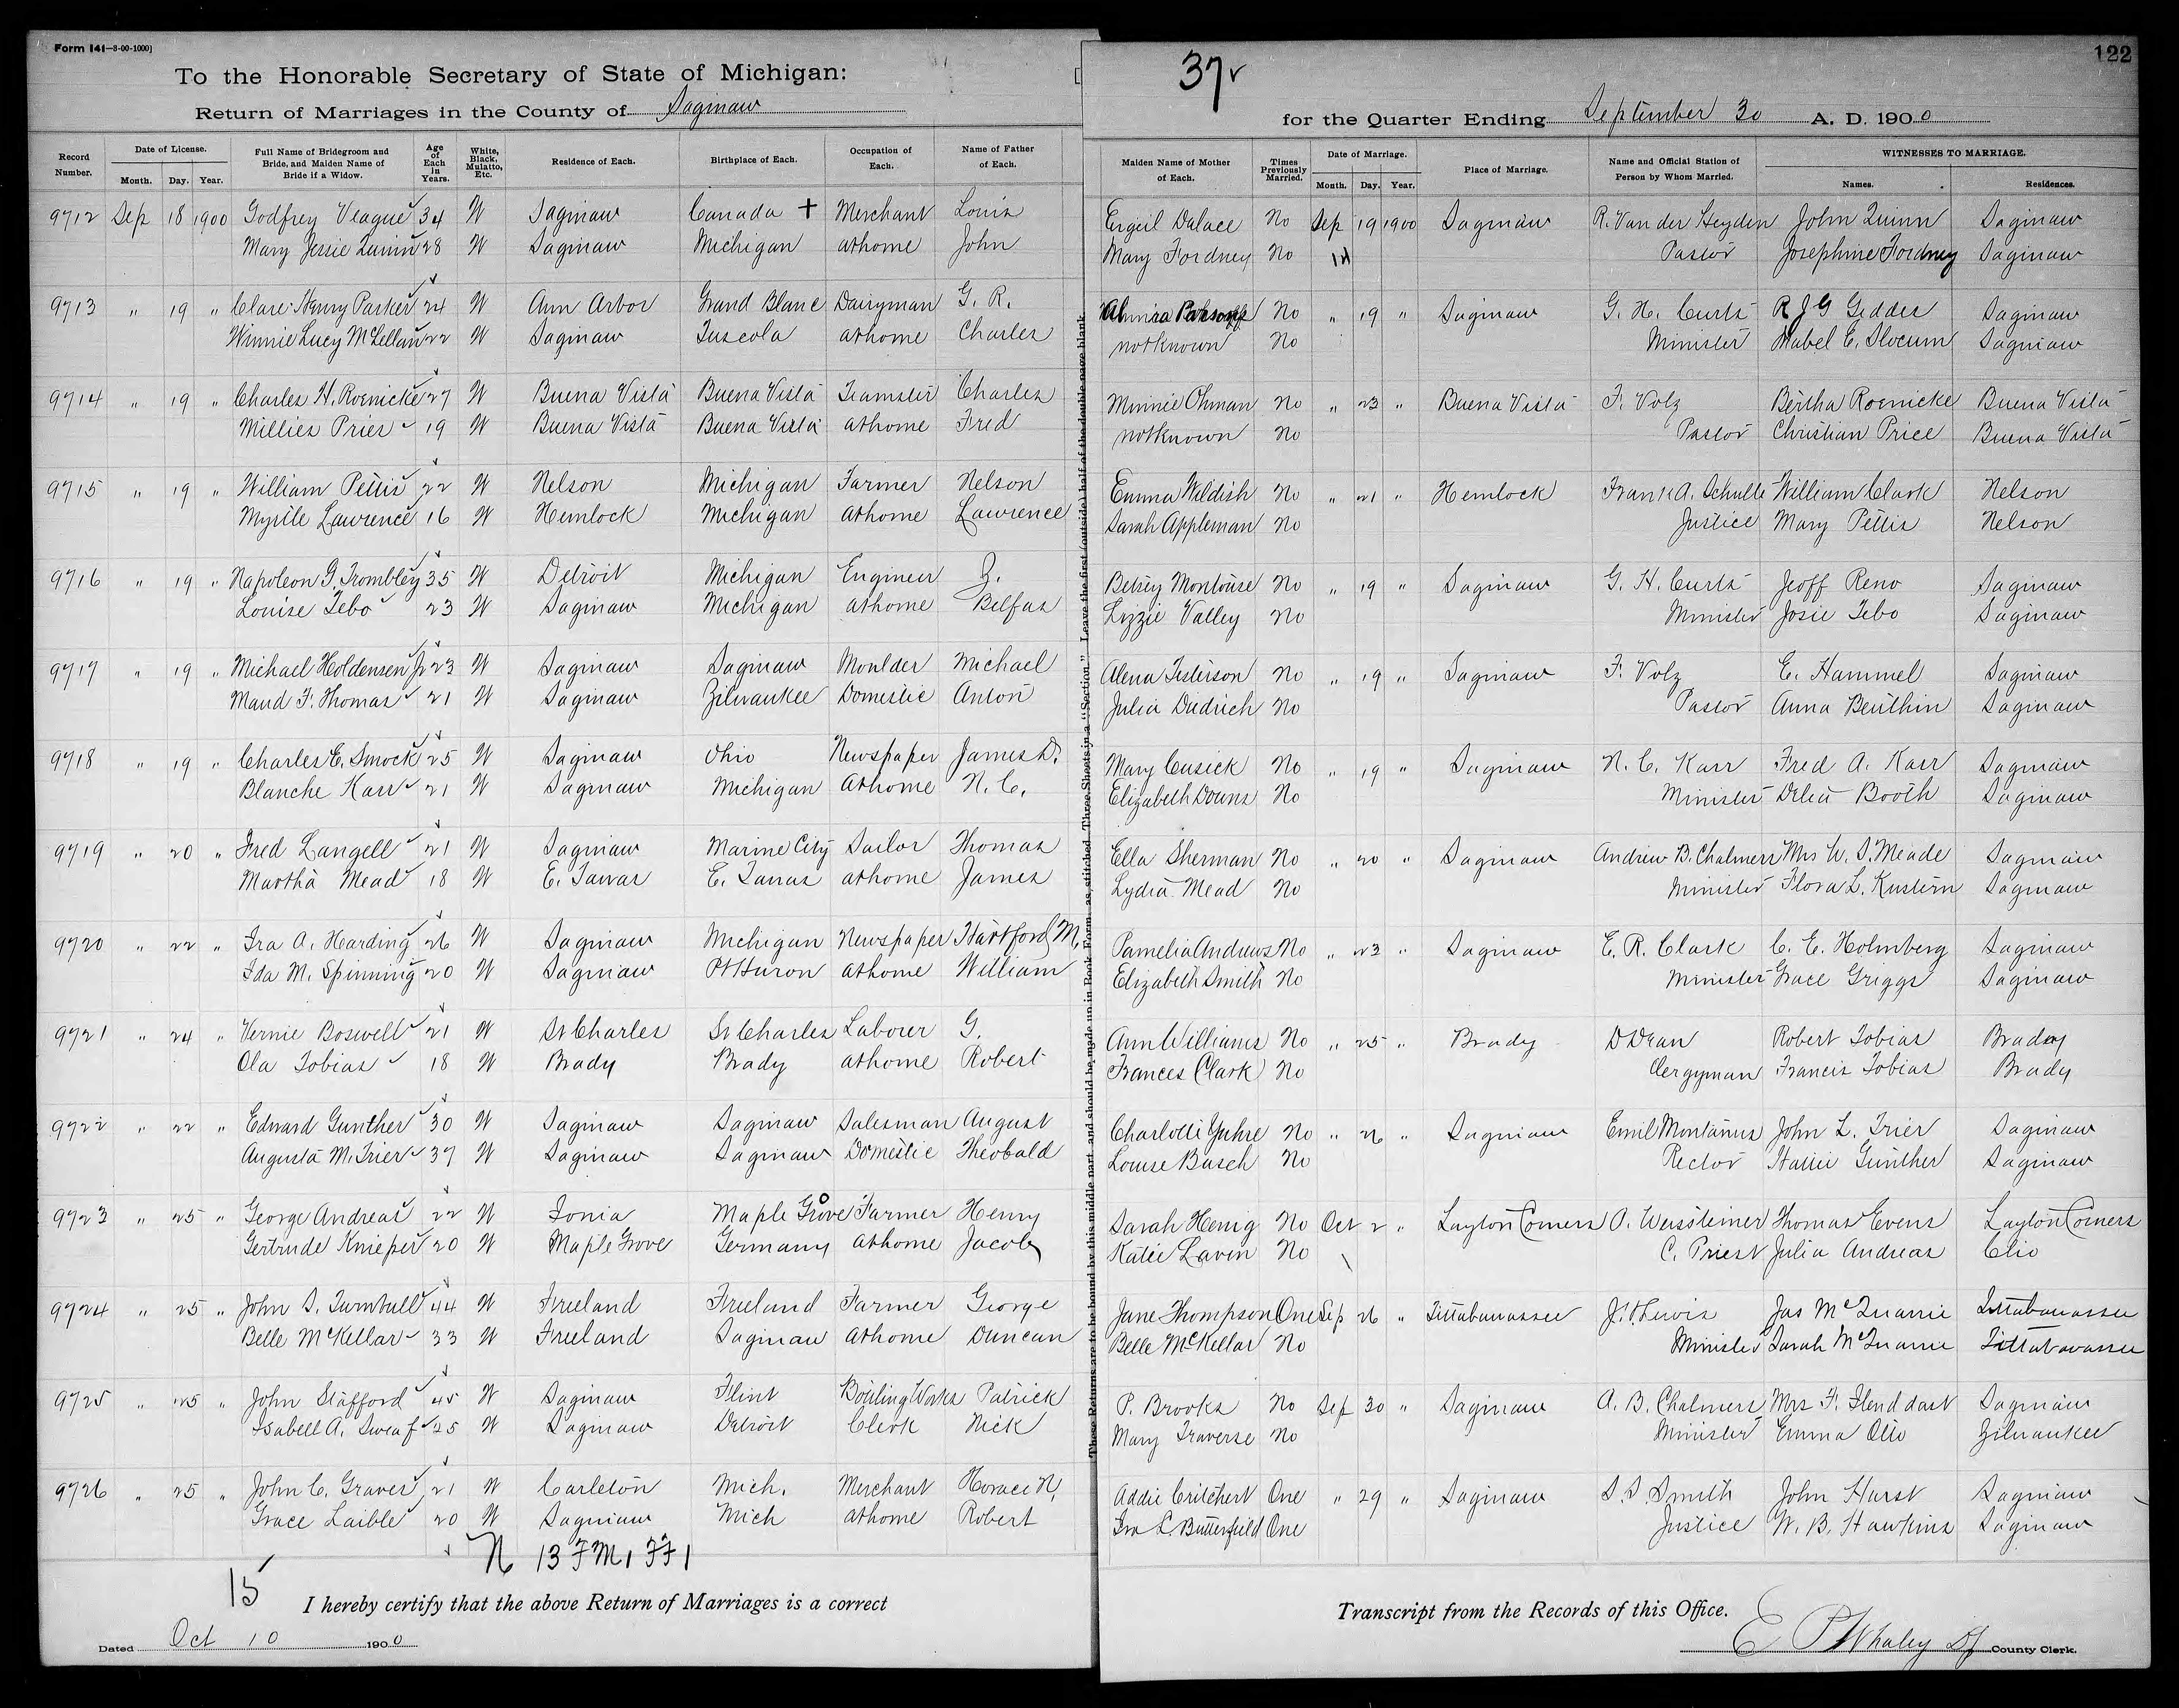 Form 141—3-00-1000]
To the Honorable Secretary of State of Michigan:
Return of Marriages in the County of Saginaw
37
122
for the Quarter Ending September 30 A. D. 1900
Record Number. Date of License. Month. Day. Year. Full Name of Bridegroom and Bride, and Maiden Name of Bride if a Widow. Age of Each in Years. White, Black, Mulatto, Etc. Residence of Each. Birthplace of Each. Occupation of Each. Name of Father of Each. Maiden Name of Mother of Each. Times Previously Married. Date of Marriage. Month. Day. Year. Place of Marriage. Name and Official Station of Person by Whom Married. WITNESSES TO MARRIAGE. Names. Residences.
9712 Sep 18 1900 Godfrey Veague 34 W Saginaw Canada + Merchant Louis Ergiel Dalace No Sep 19 1900 Saginaw R. Van der Heyden John Quinn Saginaw
Mary Jessie Quinn 28 W Saginaw Michigan at home John Mary Fordney No Pastor Josephine Fordney Saginaw
9713 " 19 " Clare Henry Parker 24 W Ann Arbor Grand Blanc Dairyman G. R. No " 19 " Saginaw G. H. Curts R J G Geddes Saginaw
Winnie Lucy McLellan 22 W Saginaw Tuscola at home Charles not known No Minister Mabel E. Slocum Saginaw
9714 " 19 " Charles H. Roenicke 27 W Buena Vista Buena Vista Teamster Charles Minnie Ohman No " 23 " Buena Vista F. Volz Bertha Roenicke Buena Vista
Millies Prier 19 W Buena Vista Buena Vista at home Fred not known No Pastor Christian Price Buena Vista
9715 " 19 " William Pettis 22 W Nelson Michigan Farmer Nelson Emma Wildish No " 21 " Hemlock Frank A. Schulte William Clark Nelson
Myrtle Lawrence 16 W Hemlock Michigan at home Lawrence Sarah Appleman No Justice Mary Pettis Nelson
9716 " 19 " Napoleon G. Trombley 35 W Detroit Michigan Engineer Z. Betsey Montouse No " 19 " Saginaw G. H. Curts Jeoff Reno Saginaw
Louise Tebo 23 W Saginaw Michigan at home Belfas Lizzie Valley No Minister Josie Tebo Saginaw
9717 " 19 " Michael Holdensen Jr 23 W Saginaw Saginaw Moulder Michael Alena Festerson No " 19 " Saginaw F. Volz E. Hammel Saginaw
Maud F. Thomas 21 W Saginaw Zilwaukee Domestic Anton Julia Dudrich No Pastor Anna Beuthin Saginaw
9718 " 19 " Charles E. Smock 25 W Saginaw Ohio Newspaper James D. Mary Cusick No " 19 " Saginaw N. C. Karr Fred A. Karr Saginaw
Blanche Karr 21 W Saginaw Michigan At home N. C. Elizabeth Downs No Minister Delia Booth Saginaw
9719 " 20 " Fred Langell 21 W Saginaw Marine City Sailor Thomas Ella Sherman No " 20 " Saginaw Andrew B. Chalmers Mrs W. S. Meade Saginaw
Martha Mead 18 W E. Tawas E. Tawas at home James Lydia Mead No Minister Flora L. Kustern Saginaw
9720 " 22 " Ira A. Harding 26 W Saginaw Michigan Newspaper Hartford M. Pamelia Andrews No " 23 " Saginaw E. R. Clark C. E. Holmberg Saginaw
Ida M. Spinning 20 W Saginaw Pt Huron at home William Elizabeth Smith No Minister Grace Griggs Saginaw
9721 " 24 " Vernie Boswell 21 W St Charles St Charles Laborer G. Ann Williams No " 25 " Brady D Dean Robert Tobias Brady
Ola Tobias 18 W Brady Brady at home Robert Frances Clark No Clergyman Francis Tobias Brady
9722 " 22 " Edward Gunther 30 W Saginaw Saginaw Salesman August Charlotte Yuhse No " 26 " Saginaw Emil Montanus John L. Trier Saginaw
Augusta M. Trier 37 W Saginaw Saginaw Domestic Theobald Louise Busch No Rector Hattie Gunther Saginaw
9723 " 25 " George Andreas 22 W Ionia Maple Grove Farmer Henry Sarah Henig No Oct 2 " Layton Corners O. Weissteiner Thomas Evens Layton Corners
Gertrude Knieper 20 W Maple Grove Germany at home Jacob Katie Lavin No C. Priest Julia Andreas Clio
9724 " 25 " John S. Turnbull 44 W Freeland Freeland Farmer George Jane Thompson One Sep 26 " Tittabawassee J. F. Lewis Jas McQuarrie Tittabawassee
Belle McKellar 33 W Freeland Saginaw at home Duncan Belle McKellar No Minister Sarah McQuarrie Tittabawassee
9725 " 25 " John Stafford 45 W Saginaw Flint Bottling Works Patrick P. Brooks No Sep 30 " Saginaw A. B. Chalmers Mrs F. Flenddast Saginaw
Isabell A. 45 W Saginaw Detroit Clerk Nick Mary Traverse No Minister Emma Otto Zilwaukee
9726 " 25 " John C. Graves 21 W Carleton Mich. Merchant Horace N. Addie Critchert One " 29 " Saginaw S. S. Smith John Hurst Saginaw
Grace Laible 20 W Saginaw Mich at home Robert Ira L. Butterfield One Justice W. B. Hawkins Saginaw
N 13 F M 1 F F 1
15
I hereby certify that the above Return of Marriages is a correct
Transcript from the Records of this Office.
Dated Oct 10 1900
E P Whaley Dy County Clerk.
These Returns are to be bound by this middle part, and should be made up in Book Form, as stitched, Three Sheets in a "Section." Leave the first (outside) half of the double page blank.